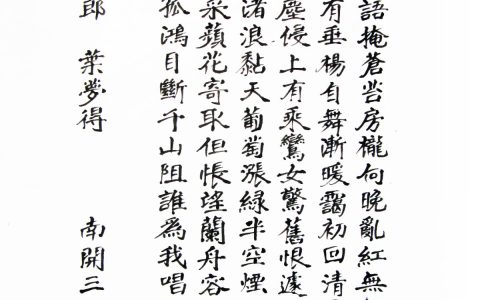 語掩蒼苔房櫳向晚亂紅無
有垂楊自舞漸暖靄初回清
塵侵上有乘鸞女驚舊恨遽
渚浪黏天葡萄漲綠半空煙
采蘋花寄取但悵望蘭舟容
孤鴻目斷千山阻誰爲我唱
郎 葉夢得 南開三